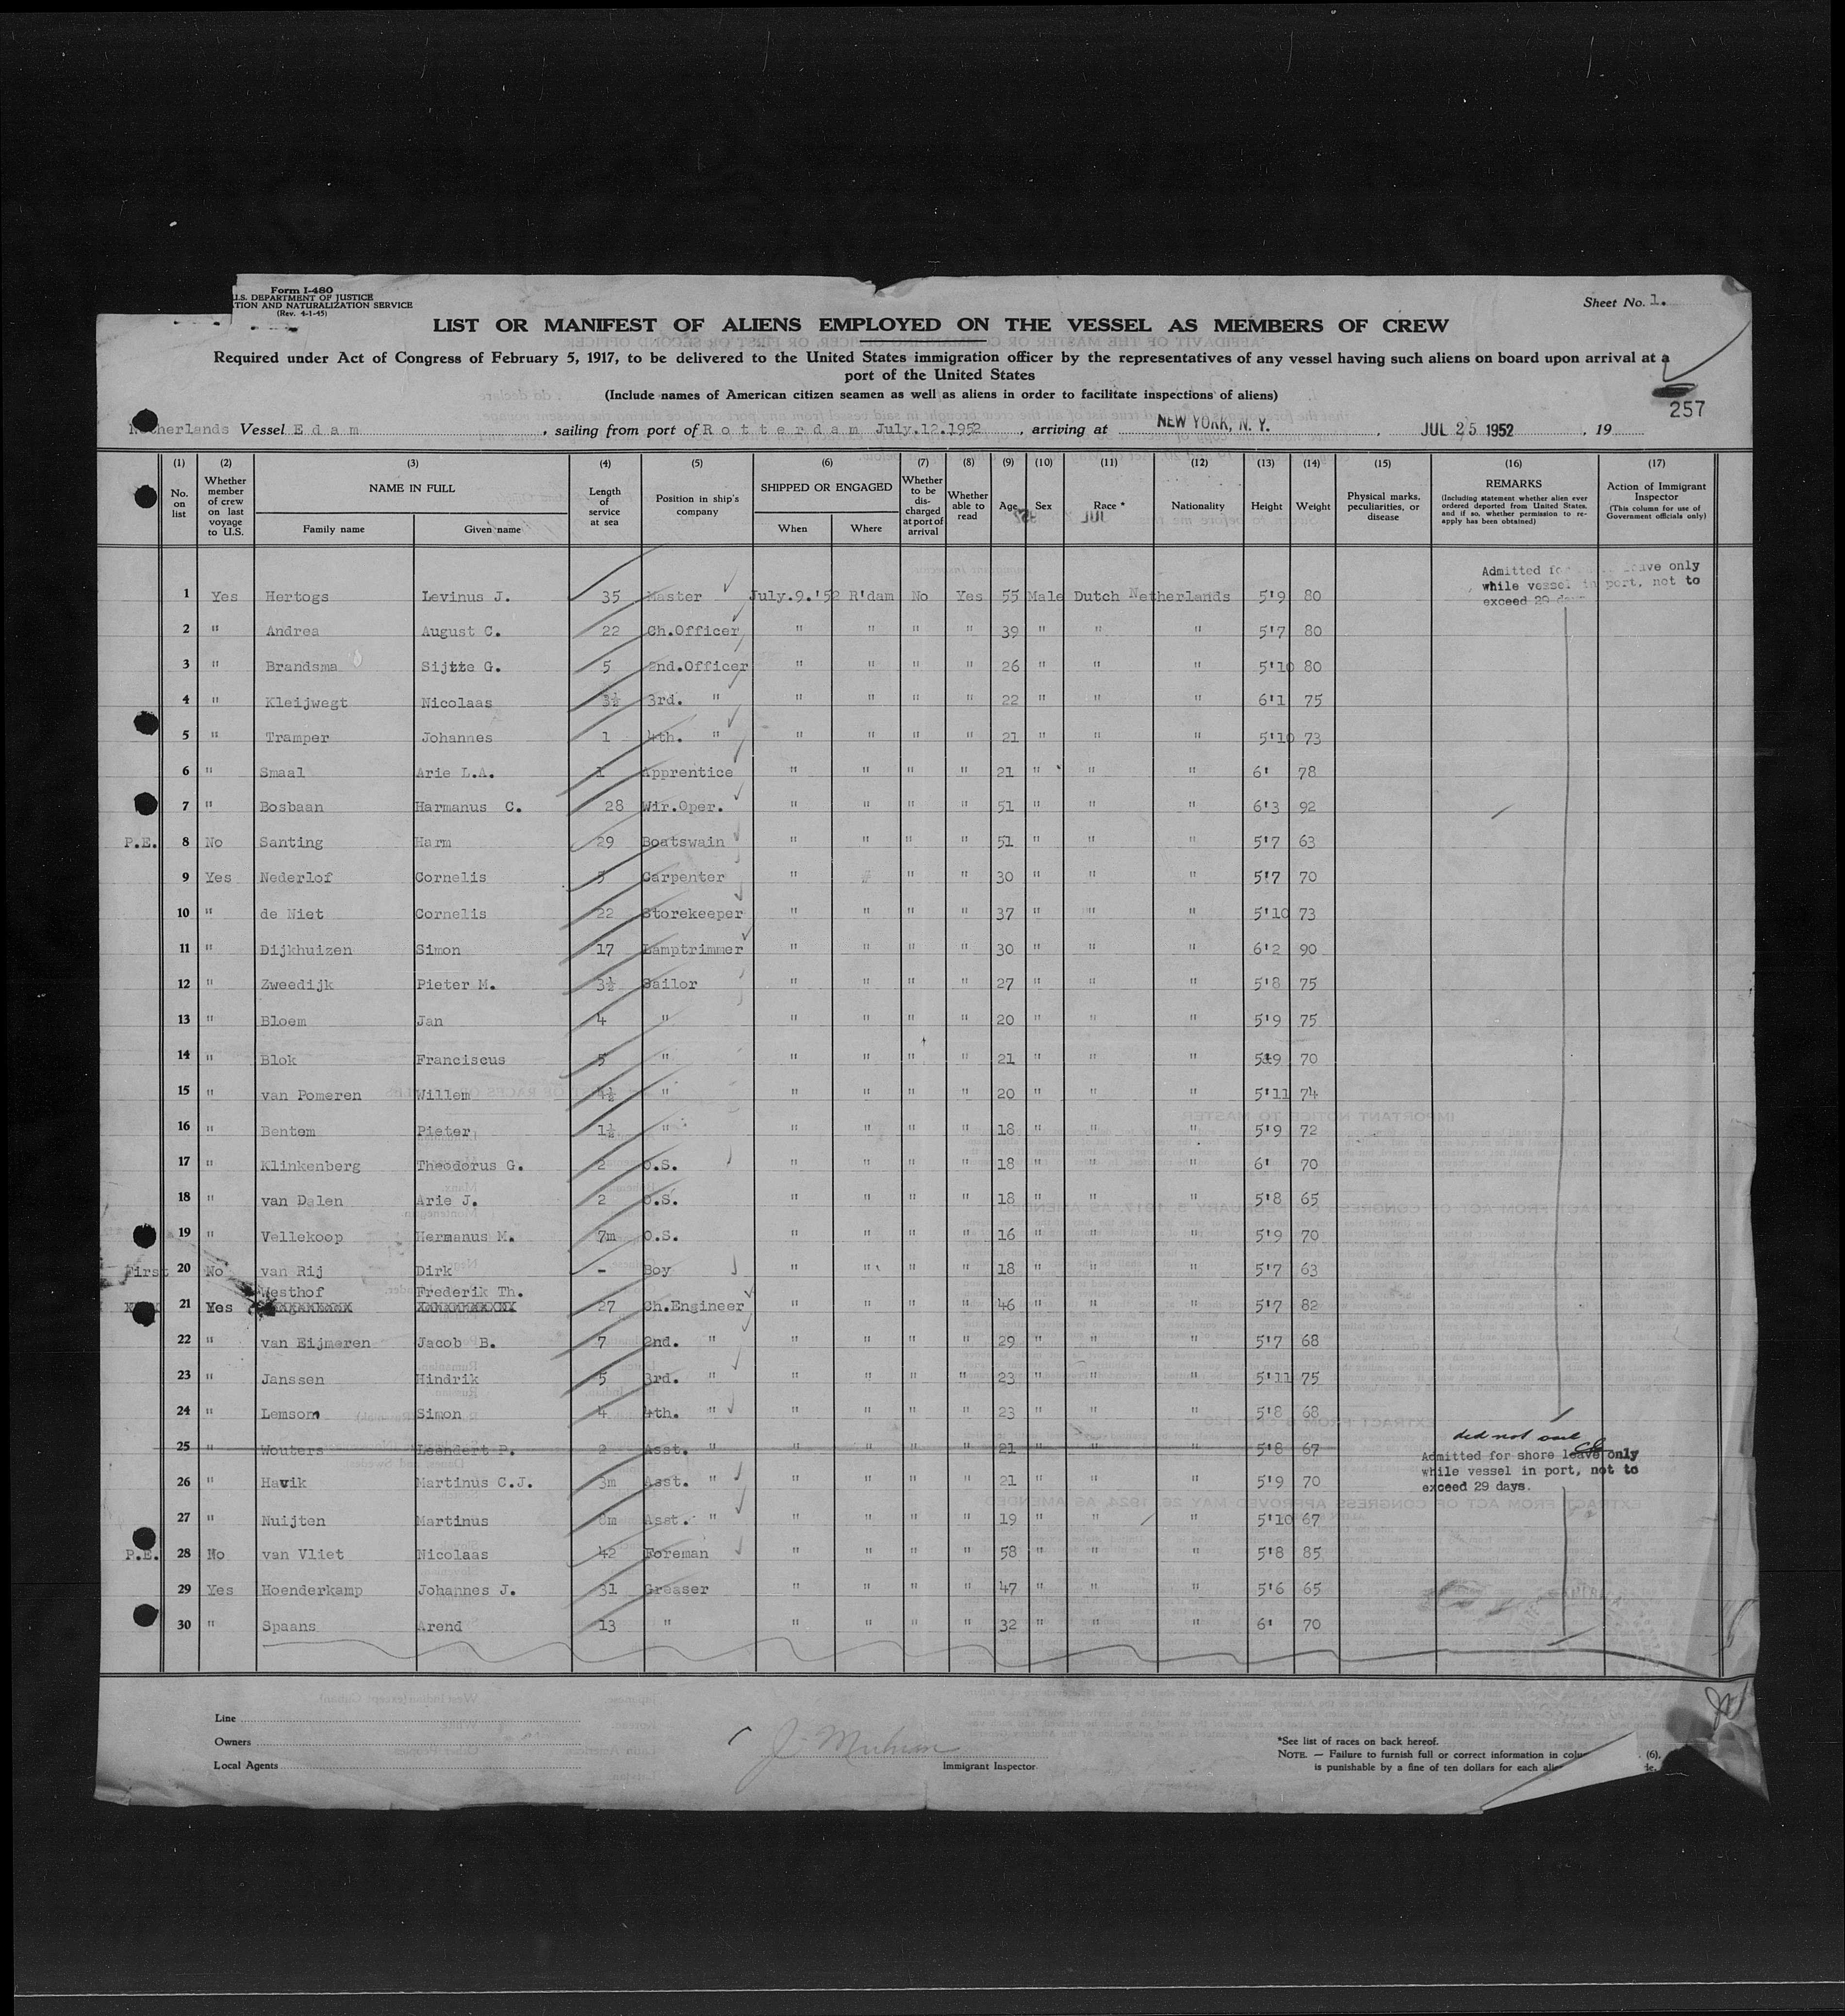 Form I-480
U.S. DEPARTMENT OF JUSTICE
TION AND NATURALIZATION SERVICE
(Rev. 4-1-45)
Sheet No. 1.
LIST OR MANIFEST OF ALIENS EMPLOYED ON THE VESSEL AS MEMBERS OF CREW
Required under Act of Congress of February 5, 1917, to be delivered to the United States immigration officer by the representatives of any vessel having such aliens on board upon arrival at a
port of the United States
(Include names of American citizen seamen as well as aliens in order to facilitate inspections of aliens)
257
Netherlands Vessel E d a m , sailing from port of R o t t e r d a m July.12.1952 , arriving at NEW YORK, N. Y. , JUL 25 1952 , 19
(1) (2) (3) (4) (5) (6) (7) (8) (9) (10) (11) (12) (13) (14) (15) (16) (17)
No. on list
Whether member of crew on last voyage to U.S.
NAME IN FULL
Family name Given name
Length of service at sea
Position in ship's company
SHIPPED OR ENGAGED
When Where
Whether to be discharged at port of arrival
Whether able to read
Age Sex Race * Nationality Height Weight
Physical marks, peculiarities, or disease
REMARKS
(Including statement whether alien ever ordered deported from United States, and if so, whether permission to reapply has been obtained)
Action of Immigrant Inspector
(This column for use of Government officials only)
Admitted for leave only
while vessel in port, not to
exceed 29 days
1 Yes Hertogs Levinus J. 35 Master July.9.'52 R'dam No Yes 55 Male Dutch Netherlands 5'9 80
2 " Andrea August C. 22 Ch.Officer " " " " 39 " " " 5'7 80
3 " Brandsma Sijtze G. 5 2nd.Officer " " " " 26 " " " 5'10 80
4 " Kleijwegt Nicolaas 3½ 3rd. " " " " " 22 " " " 6'1 75
5 " Tramper Johannes 1 4th. " " " " " 21 " " " 5'10 73
6 " Smaal Arie L.A. 1 Apprentice " " " " 21 " " " 6' 78
7 " Bosbaan Harmanus C. 28 Wir.Oper. " " " " 51 " " " 6'3 92
P.E. 8 No Santing Harm 29 Boatswain " " " " 51 " " " 5'7 63
9 Yes Nederlof Cornelis 5 Carpenter " " " " 30 " " " 5'7 70
10 " de Niet Cornelis 22 Storekeeper " " " " 37 " " " 5'10 73
11 " Dijkhuizen Simon 17 Lamptrimmer " " " " 30 " " " 6'2 90
12 " Zweedijk Pieter M. 3½ Sailor " " " " 27 " " " 5'8 75
13 " Bloem Jan 4 " " " " " 20 " " " 5'9 75
14 " Blok Franciscus 5 " " " " " 21 " " " 5'9 70
15 " van Pomeren Willem 4½ " " " " " 20 " " " 5'11 74
16 " Bentem Pieter 1½ " " " " " 18 " " " 5'9 72
17 " Klinkenberg Theodorus G. 2 O.S. " " " " 18 " " " 6' 70
18 " van Dalen Arie J. 2 O.S. " " " " 18 " " " 5'8 65
19 " Vellekoop Hermanus M. 7m O.S. " " " " 16 " " " 5'9 70
First 20 No van Rij Dirk - Boy " " " " 18 " " " 5'7 63
Westhof Frederik Th.
21 Yes 27 Ch.Engineer " " " " 46 " " " 5'7 82
22 " van Eijmeren Jacob B. 7 2nd. " " " " " 29 " " " 5'7 68
23 " Janssen Hindrik 5 3rd. " " " " " 23 " " " 5'11 75
24 " Lemsom Simon 4 4th. " " " " " 23 " " " 5'8 68
did not sail
25 " Wouters Leendert P. 2 Asst. " " " " " 21 " " " 5'8 67
Admitted for shore leave only
while vessel in port, not to
exceed 29 days.
26 " Havik Martinus C.J. 3m Asst. " " " " " 21 " " " 5'9 70
27 " Nuijten Martinus 8m Asst. " " " " " 19 " " " 5'10 67
P.E. 28 No van Vliet Nicolaas 42 Foreman " " " " 58 " " " 5'8 85
29 Yes Hoenderkamp Johannes J. 31 Greaser " " " " 47 " " " 5'6 65
30 " Spaans Arend 13 " " " " " 32 " " " 6' 70
Line
Owners
Local Agents
Immigrant Inspector
*See list of races on back hereof.
NOTE. — Failure to furnish full or correct information in colu (6),
is punishable by a fine of ten dollars for each alie de.